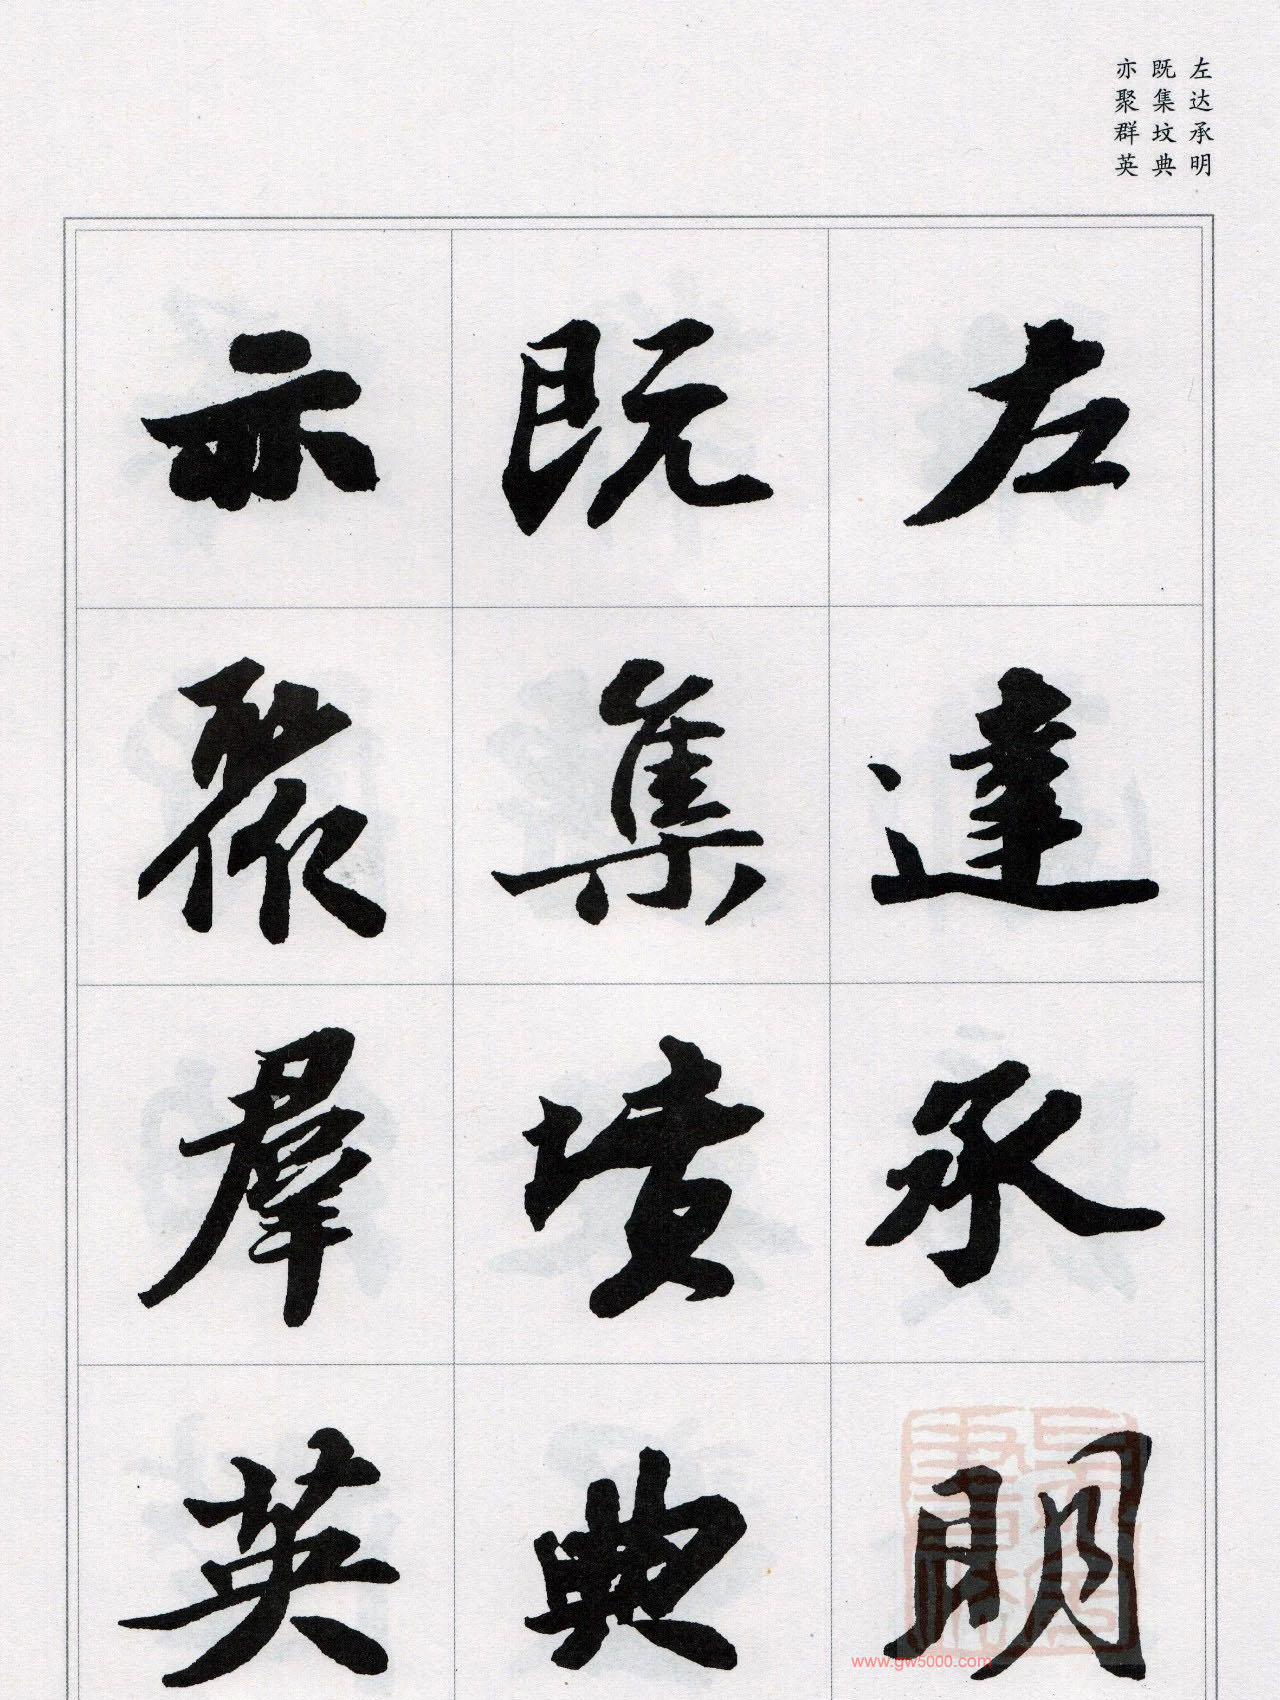 左达承明
既集坟典
亦聚群英
左達承明
既集墳典
亦聚羣英
www.gw5000.com